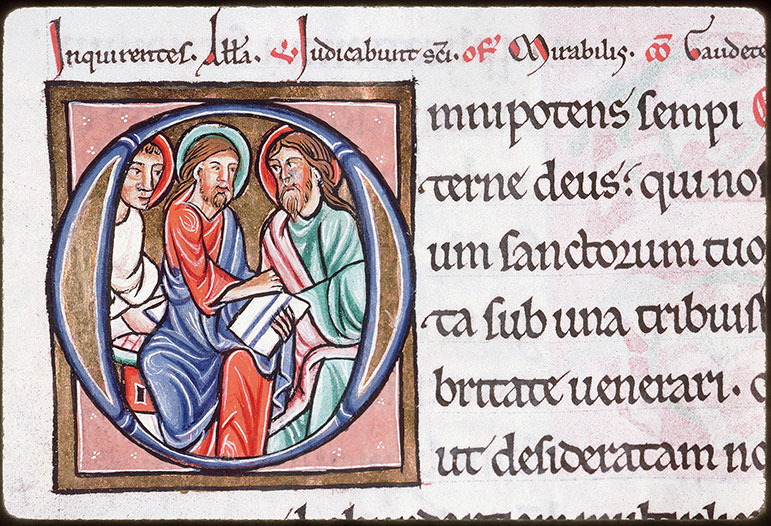 Inquirentes. Alla. Judicabunt sci. of Mirabilis. co Gaudete
Omnipotens sempi
terne deus: qui nos
um sanctorum tuo
ta sub una tribuis
britate uenerari.
ut desideratam no